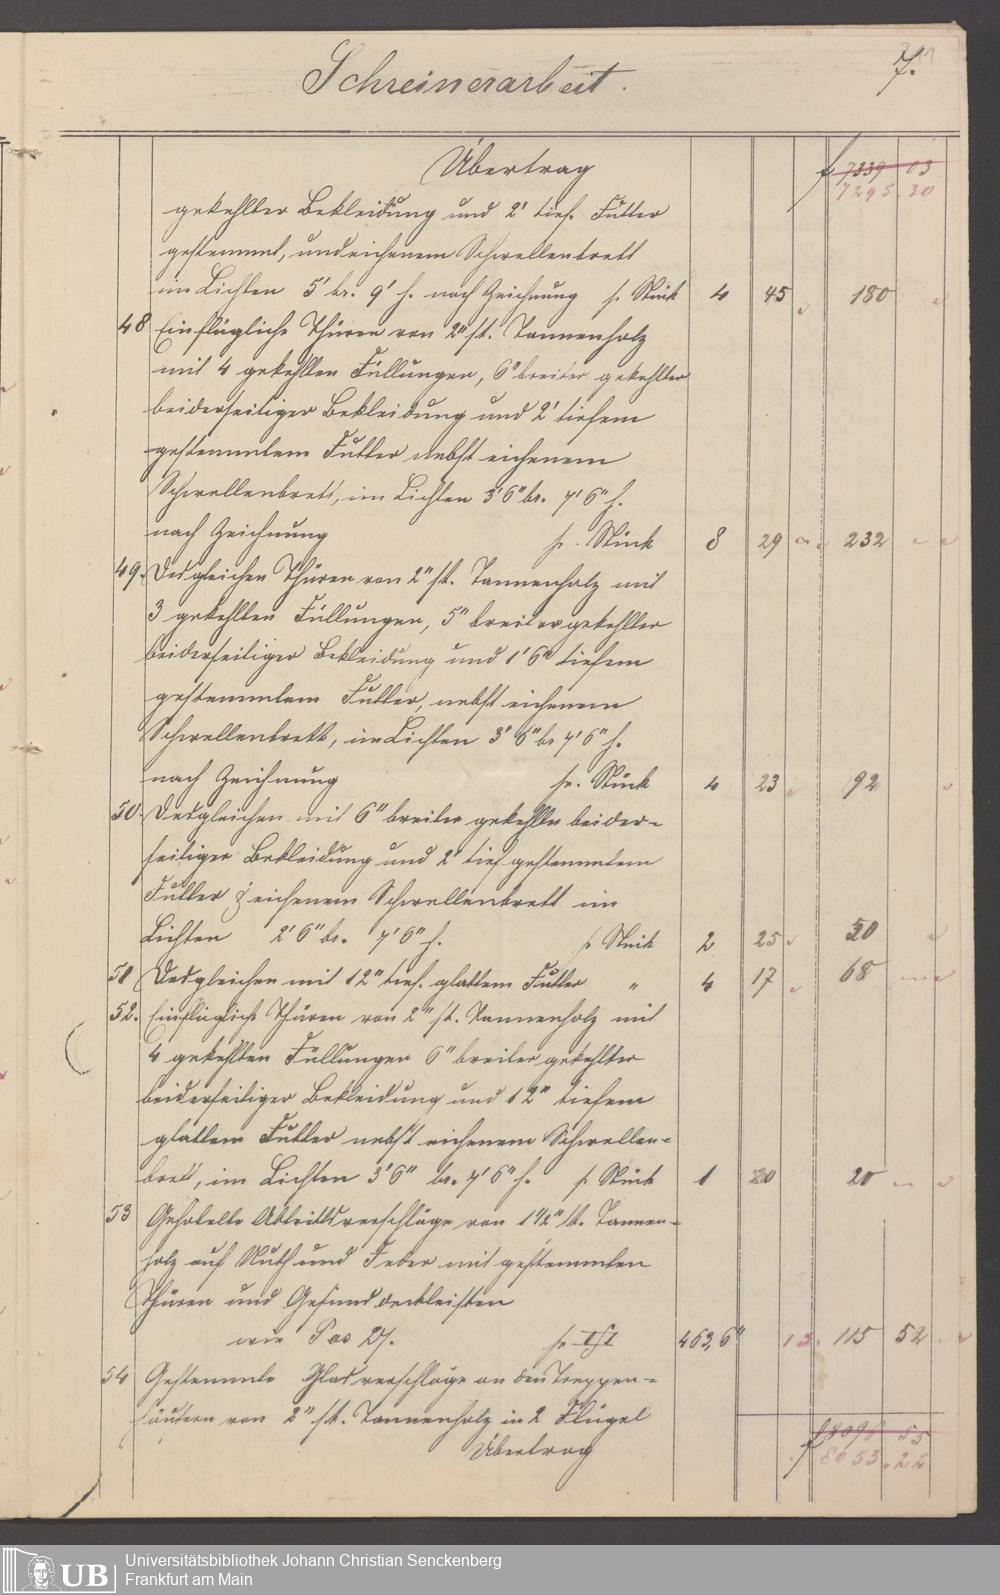 Schreinerarbeit. 7.
Übertrag f 7339 03
7295.30
gekehlter Bekleidung und 2' tief. Futter
gestemmt, und eichenem Schwellenbrett
im Lichten 5' br. 9' h. nach Zeichnung p. Stück 4 45 180
48 Einflügliche Thüren von 2" st. Tannenholz
mit 4 gekehlten Füllungen, 6" breiter gekehlter
beiderseitiger Bekleidung und 2' tiefem
gestemmtem Futter nebst eichenem
Schwellenbrett, im Lichten 3'6" br. 7'6" h.
nach Zeichnung pr. Stück 8 29 232
49. Desgleichen Thüren von 2" st. Tannenholz mit
3 gekehlten Füllungen, 5" breiter gekehlter
beiderseitiger Bekleidung und 1'6" tiefem
gestemmtem Futter, nebst eichenem
Schwellenbrett, im Lichten 3' 6" br 7'6" h.
nach Zeichnung pr. Stück 4 23 92
50. Desgleichen mit 6" breiter gekehlter beider-
seitiger Bekleidung und 2' tief gestemmtem
Futter & eichenem Schwellenbrett im
Lichten 2'6" br. 7'6" h. p Stück 2 25 50
51 Desgleichen mit 12" tief. glattem Futter " 4 17 68
52. Einflügliche Thüren von 2" st. Tannenholz mit
4 gekehlten Füllungen 6" breiter gekehlter
beiderseitiger Bekleidung und 12" tiefem
glattem Futter nebst eichenem Schwellen-
brett, im Lichten 3'6" br. 7'6" h. p Stück 1 20 20
53 Gehobelte Abtrittsverschläge von 1 1/2" st. Tannen-
holz auf Nuth und Feder mit gestemmten
Thüren und Gesimsdeckleisten
wie Pos 27. pr. 463,6" 115 52
54 Gestemmte Glasverschläge an den Treppen-
häusern von 2" st. Tannenholz in 2 Flügel
Übertrag f 8096 55
8053.22
Universitätsbibliothek Johann Christian Senckenberg
UB Frankfurt am Main